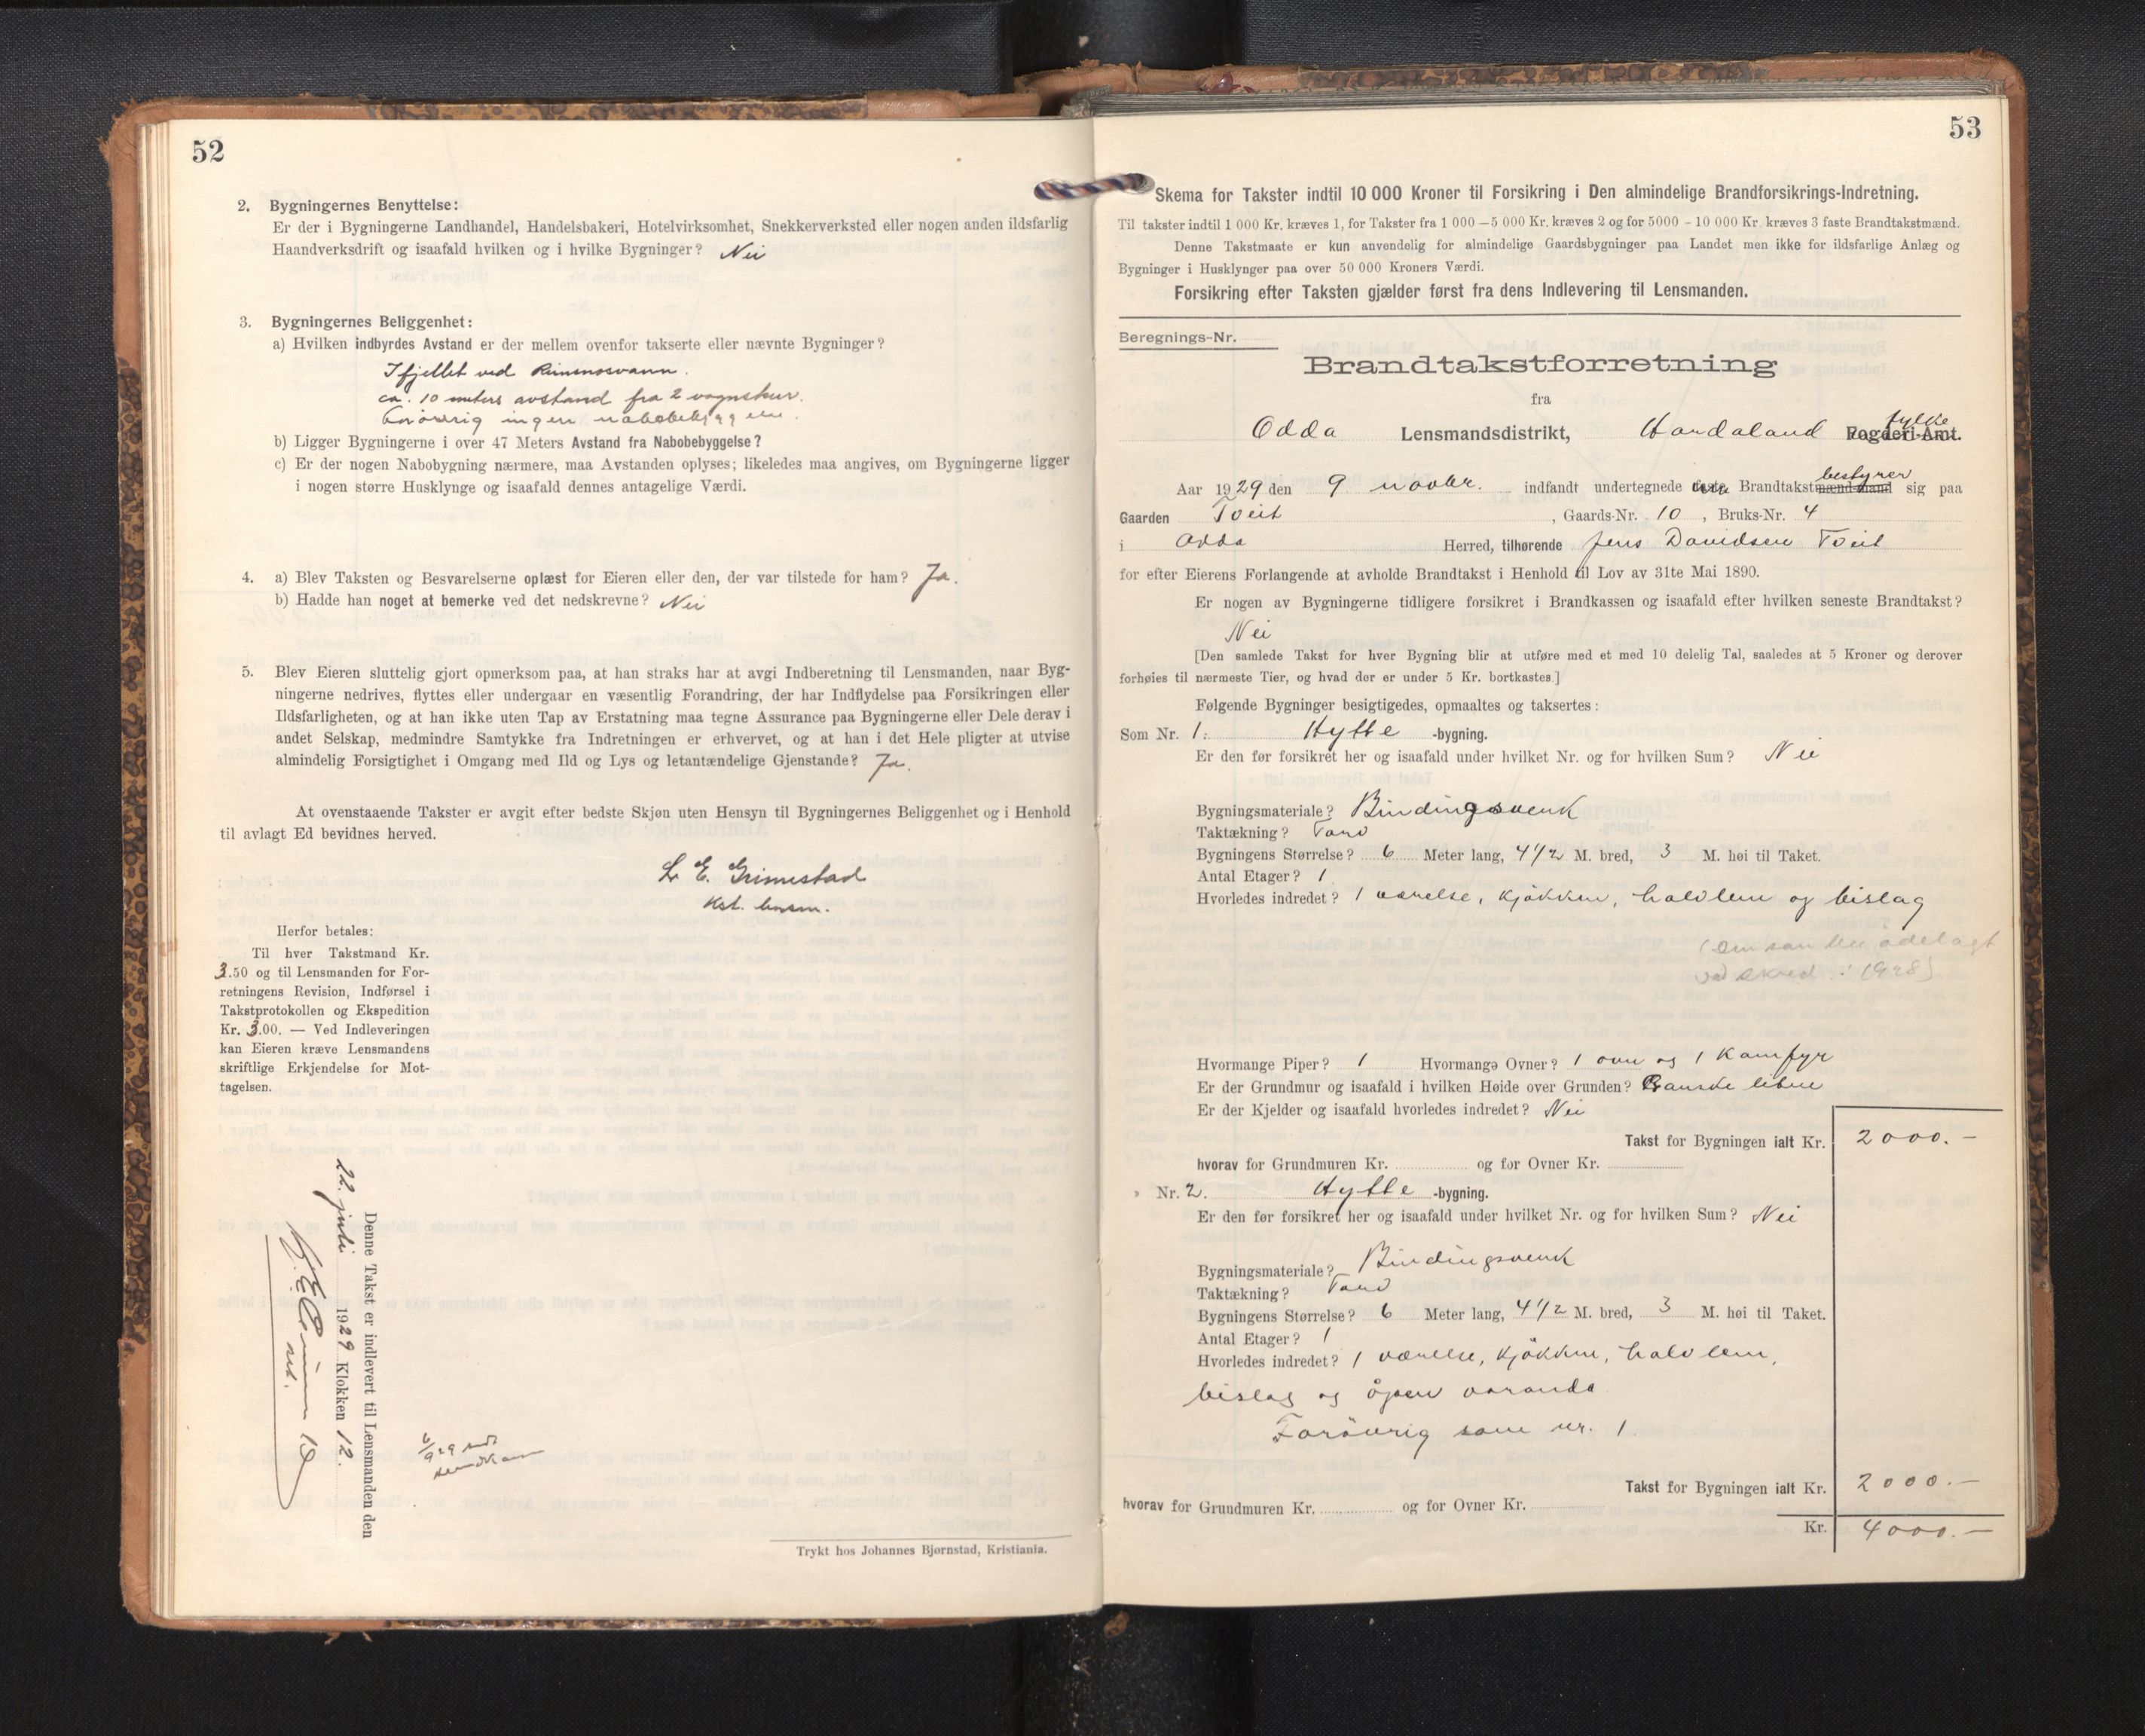 52
2. Bygningernes Benyttelse:
Er der i Bygningerne Landhandel, Handelsbakeri, Hotelvirksomhet, Snekkerverksted eller nogen anden ildsfarlig
Haandverksdrift og isaafald hvilken og i hvilke Bygninger? Nei
3. Bygningernes Beliggenhet:
a) Hvilken indbyrdes Avstand er der mellem ovenfor takserte eller nævnte Bygninger?
I fjellet ved
ca. 10 meters avstand fra 2 vognskur.
Forøvrig ingen nabobebyggelse.
b) Ligger Bygningerne i over 47 Meters Avstand fra Nabobebyggelse?
c) Er der nogen Nabobygning nærmere, maa Avstanden oplyses; likeledes maa angives, om Bygningerne ligger
i nogen større Husklynge og isaafald dennes antagelige Værdi.
4. a) Blev Taksten og Besvarelserne oplæst for Eieren eller den, der var tilstede for ham? Ja.
b) Hadde han noget at bemerke ved det nedskrevne? Nei
5. Blev Eieren sluttelig gjort opmerksom paa, at han straks har at avgi Indberetning til Lensmanden, naar Byg-
ningerne nedrives, flyttes eller undergaar en væsentlig Forandring, der har Indflydelse paa Forsikringen eller
Ildsfarligheten, og at han ikke uten Tap av Erstatning maa tegne Assurance paa Bygningerne eller Dele derav i
andet Selskap, medmindre Samtykke fra Indretningen er erhvervet, og at han i det Hele pligter at utvise
almindelig Forsigtighet i Omgang med Ild og Lys og letantændelige Gjenstande? Ja.
At ovenstaaende Takster er avgit efter bedste Skjøn uten Hensyn til Bygningernes Beliggenhet og i Henhold
til avlagt Ed bevidnes herved.
L. E. Grimestad
kst. lensm.
Herfor betales:
Til hver Takstmand Kr.
3.50 og til Lensmanden for For-
retningens Revision, Indførsel i
Takstprotokollen og Ekspedition
Kr. 3.00. — Ved Indleveringen
kan Eieren kræve Lensmandens
skriftlige Erkjendelse for Mot-
tagelsen.
Denne Takst er indlevert til Lensmanden den
22. juli 1929 Klokken 12.
6/9 29
Trykt hos Johannes Bjørnstad, Kristiania.
53
Skema for Takster indtil 10 000 Kroner til Forsikring i Den almindelige Brandforsikrings-Indretning.
Til takster indtil 1 000 Kr. kræves 1, for Takster fra 1 000 – 5 000 Kr. kræves 2 og for 5000 - 10 000 Kr. kræves 3 faste Brandtakstmænd.
Denne Takstmaate er kun anvendelig for almindelige Gaardsbygninger paa Landet men ikke for ildsfarlige Anlæg og
Bygninger i Husklynger paa over 50 000 Kroners Værdi.
Forsikring efter Taksten gjælder først fra dens Indlevering til Lensmanden.
Beregnings-Nr.
Brandtakstforretning
fra
Odda Lensmandsdistrikt, Hordaland Fogderi-Amt. fylke
Aar 1929 den 9 novbr. indfandt undertegnede faste Brandtakstmænd-mand bestyrer sig paa
Gaarden Tveit, Gaards-Nr. 10, Bruks-Nr. 4
i Odda Herred, tilhørende Jens Davidsen Tveit
for efter Eierens Forlangende at avholde Brandtakst i Henhold til Lov av 31te Mai 1890.
Er nogen av Bygningerne tidligere forsikret i Brandkassen og isaafald efter hvilken seneste Brandtakst?
Nei
[Den samlede Takst for hver Bygning blir at utføre med et med 10 delelig Tal, saaledes at 5 Kroner og derover
forhøies til nærmeste Tier, og hvad der er under 5 Kr. bortkastes.]
Følgende Bygninger besigtigedes, opmaaltes og taksertes:
Som Nr. 1. Hytte -bygning.
Er den før forsikret her og isaafald under hvilket Nr. og for hvilken Sum? Nei
Bygningsmateriale? Bindingsverk
Taktækning? Torv
Bygningens Størrelse? 6 Meter lang, 4 1/2 M. bred, 3 M. høi til Taket.
Antal Etager? 1
Hvorledes indredet? 1 værelse, kjökken, halvlem og bislag
(Den som ble ödelagt
ved skred i 1928)
Hvormange Piper? 1 Hvormange Ovner? 1 ovn og 1 Komfyr
Er der Grundmur og isaafald i hvilken Høide over Grunden? Ganske liten
Er der Kjelder og isaafald hvorledes indredet? Nei
Takst for Bygningen ialt Kr. 2000.–
hvorav for Grundmuren Kr. og for Ovner Kr.
» Nr. 2. Hytte -bygning.
Er den før forsikret her og isaafald under hvilket Nr. og for hvilken Sum? Nei
Bygningsmateriale? Bindingsverk
Taktækning? Torv
Bygningens Størrelse? 6 Meter lang, 4 1/2 M. bred, 3 M. høi til Taket.
Antal Etager? 1
Hvorledes indredet? 1 værelse, kjökken, halvlem,
bislag og åpen varanda
Forövrig som nr. 1.
Takst for Bygningen ialt Kr. 2000.–
hvorav for Grundmuren Kr. og for Ovner Kr.
Kr. 4000.–